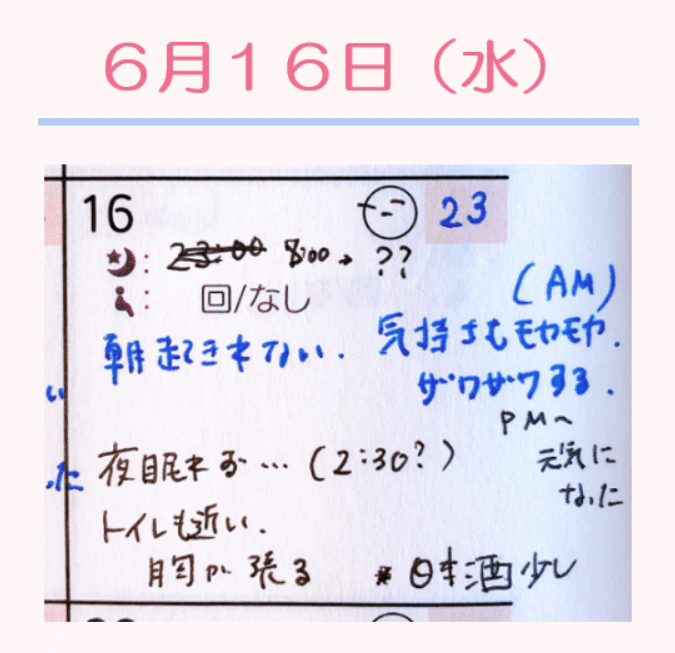 6月16日（水）
16 23
: 23:00 8:00 → ??
: 回/なし
(AM)
朝起きれない. 気持ちもモヤモヤ.
ザワザワする.
PM〜
元気に
なった
夜眠れず…(2:30?)
トイレも近い.
胸が張る ※日本酒少し
い
った